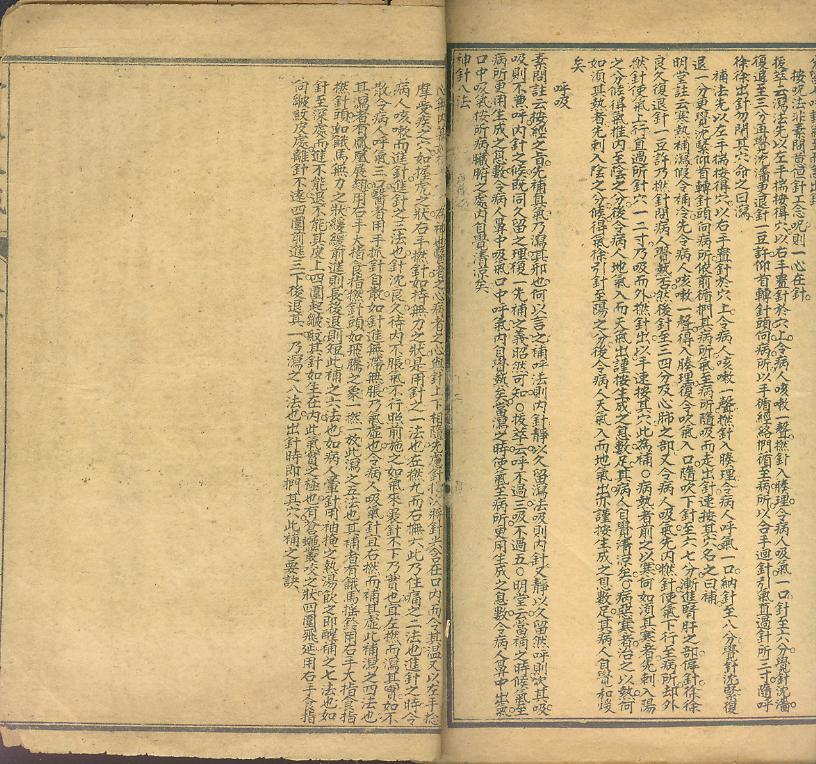 按呪法非素問意但針工念呪則一心在針
拔萃云瀉法先以左手揣按得穴以右手置針於穴上令病人咳嗽一聲撚針入腠理令病人吸氣一口針至六分覺針沈濇
復退至三分再覺沈濇更退針一豆許仰首轉針頭向病所以手循經絡捫循至病所以合手迴針引氣直過針所三寸隨呼
徐徐出針勿閉其穴命之曰瀉
補法先以左手揣按得穴以右手置針於穴上令病人咳嗽一聲撚針入腠理令病人呼氣一口納針至八分覺針沈緊復
退一分更覺沈緊仰首轉針頭向病所依前循捫其病所氣至病所隨吸而走出針速按其穴名之曰補
明堂註云寒熱補瀉假令補冷先令病人咳嗽一聲得入腠理復令吹氣一口隨吹下針至六七分漸進腎肝之部停針徐徐
良久復退針一豆許乃撚針問病人覺熱否然後針至三四分及心肺之部又令病人吸氣先內撚針使氣下行至病所却外
撚針使氣上行直過所針穴一二寸乃吸而外撚針出以手速按其穴此為補○病熱者前之以寒何如須其寒者先刺入陽
之分候得氣推內至陰之分後令病人地氣入而天氣出謹按生成之息數足其病人自覺清涼矣○病惡寒者治之以熱何
如須其熱者先刺入陰之分候得氣徐引針至陽之分後令病人天氣入而地氣出亦謹按生成之息數足其病人自覺和煖
矣
呼吸
素問註云按經之旨先補真氣乃瀉其邪也何以言之補呼法則內針靜以久留瀉法吸則內針又靜以久留然呼則次其吸
吸則不兼呼內針之候既同久留之理復一先補之義昭然可知○拔萃云呼不過三吸不過五○明堂云當補之時候氣至
病所更用生成之息數令病人鼻中吸氣口中呼氣內自覺熱矣當瀉之時使氣至病所更用生成之息數令病人鼻中出氣
口中吸氣按所病臟腑之處內自覺清涼矣
神針八法
心無內慕如待 為神也醫者之心病者之心與針上下相隨先慮針損次將針尖含在口內而令其溫又以左手捻
摩受疾之穴如握虎之狀右手撚針如持無力之狀是用針之一法也左撚九而右撚六此乃住痛之二法也進針之時令
病人咳嗽而進針進針之三法也針沈良久待內不脹氣不行照前施之如氣來裏針不下乃實也宜左撚而瀉其實如不
散令病人呼氣三口醫者用手抓針自散如針進無滯無脹乃氣虛也令病人吸氣針宜右撚而補其虛此補瀉之四法也
其瀉者有鳳凰展翅用右手大指食指撚針頭如飛騰之象一撚一放此瀉之五法也其補者有餓馬搖鈴用右手大指食指
撚針頭如餓馬無力之狀緩緩前進則長後退則短此補之六法也如病人暈針用袖掩之熱湯飲之即醒補之七法也如
針至深處而進不能退不能其皮上四圍起皺紋其針如生在內此氣實之極也有蒼蠅叢咬之狀四圍飛延用右手食指
向皺紋皮處離針不遠四圍前進三下後退其一乃瀉之八法也出針時即捫其穴此補之要訣